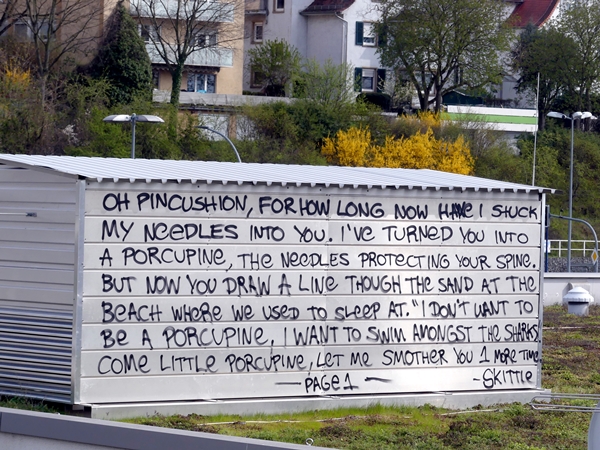 OH PINCUSHION, FOR HOW LONG NOW HAVE I SHUCK
MY NEEDLES INTO YOU. I'VE TURNED YOU INTO
A PORCUPINE, THE NEEDLES PROTECTING YOUR SPINE.
BUT NOW YOU DRAW A LINE THOUGH THE SAND AT THE
BEACH WHERE WE USED TO SLEEP AT. "I DON'T WANT TO
BE A PORCUPINE, I WANT TO SWIM AMONGST THE SHARKS
COME LITTLE PORCUPINE, LET ME SMOTHER YOU 1 MORE TIME
— PAGE 1 — - SKITTLE